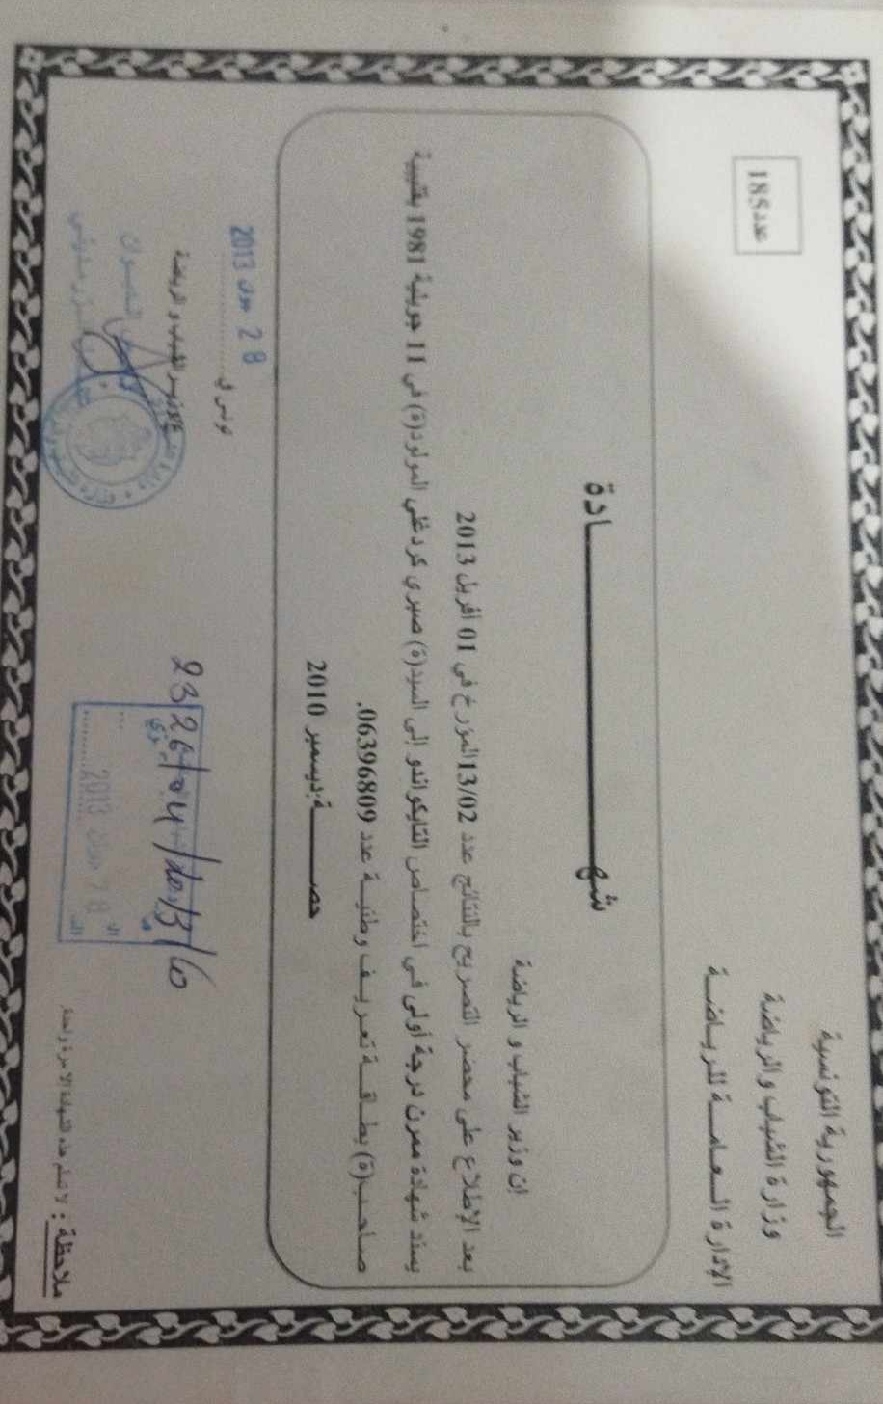 الجمهورية التونسية
وزارة الشباب والرياضة
الإدارة العامة للرياضة
عدد 185
شهادة
ان وزير الشباب و الرياضة
بعد الإطلاع على محضر التصريح بالنتائج عدد 13/02 المؤرخ في 01 أفريل 2013
يسند شهادة ممرن درجة أولى في اختصاص التايكواندو إلى السيد(ة) صبري كردغلي المولود(ة) في 11 جويلية 1981 بقليبية
صاحب(ة) بطاقة تعريف وطنية عدد 06396809.
حصة: ديسمبر 2010
تونس في
28 جوان 2013
وزير الشباب و الرياضة
28 جوان 2013
ملاحظة : لا تسلم هذه الشهادة الا مرة واحدة.